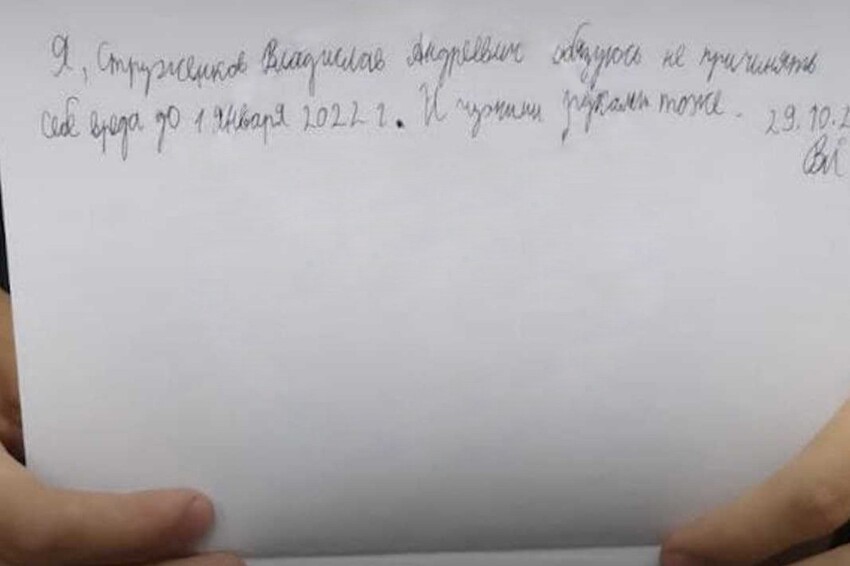 Я, Струженков Владислав Андреевич обязуюсь не причинять
себе вреда до 1 января 2022 г. И чужими руками тоже. 29.10.2
Вл